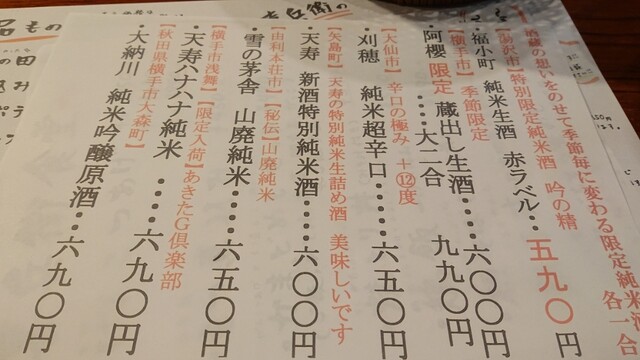 酒蔵の想いをのせて季節毎に変わる限定純米酒
各一合
【湯沢市】特別限定純米酒 吟の精
・福小町 純米生酒 赤ラベル‥五九〇円
【横手市】季節限定
・阿櫻 限定 蔵出し生酒‥‥六〇〇円
‥‥大二合 九九〇円
【大仙市】辛口の極み +⑫度
・刈穂 純米超辛口‥‥‥六五〇円
【矢島町】天寿の特別純米生詰め酒 美味しいです
・天寿 新酒特別純米酒‥‥六〇〇円
【由利本荘市】【秘伝】山廃純米
・雪の茅舎 山廃純米‥‥‥六五〇円
【横手市浅舞】【限定入荷】あきたG倶楽部
・天寿ハナハナ純米‥‥‥六九〇円
【秋田県横手市大森町】
・大納川 純米吟醸原酒‥‥六九〇円